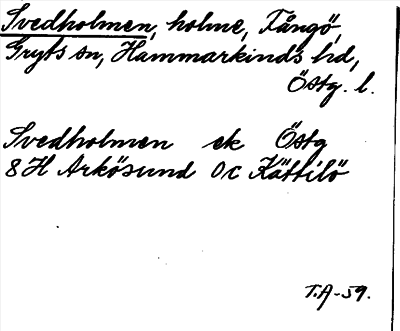 Svedholmen, holme, Fångö,
Gryts sn, Hammarkinds hd,
Östg. l.
Svedholmen ek Östg
8H Arkösund 0c Kättilö
T.A-59.